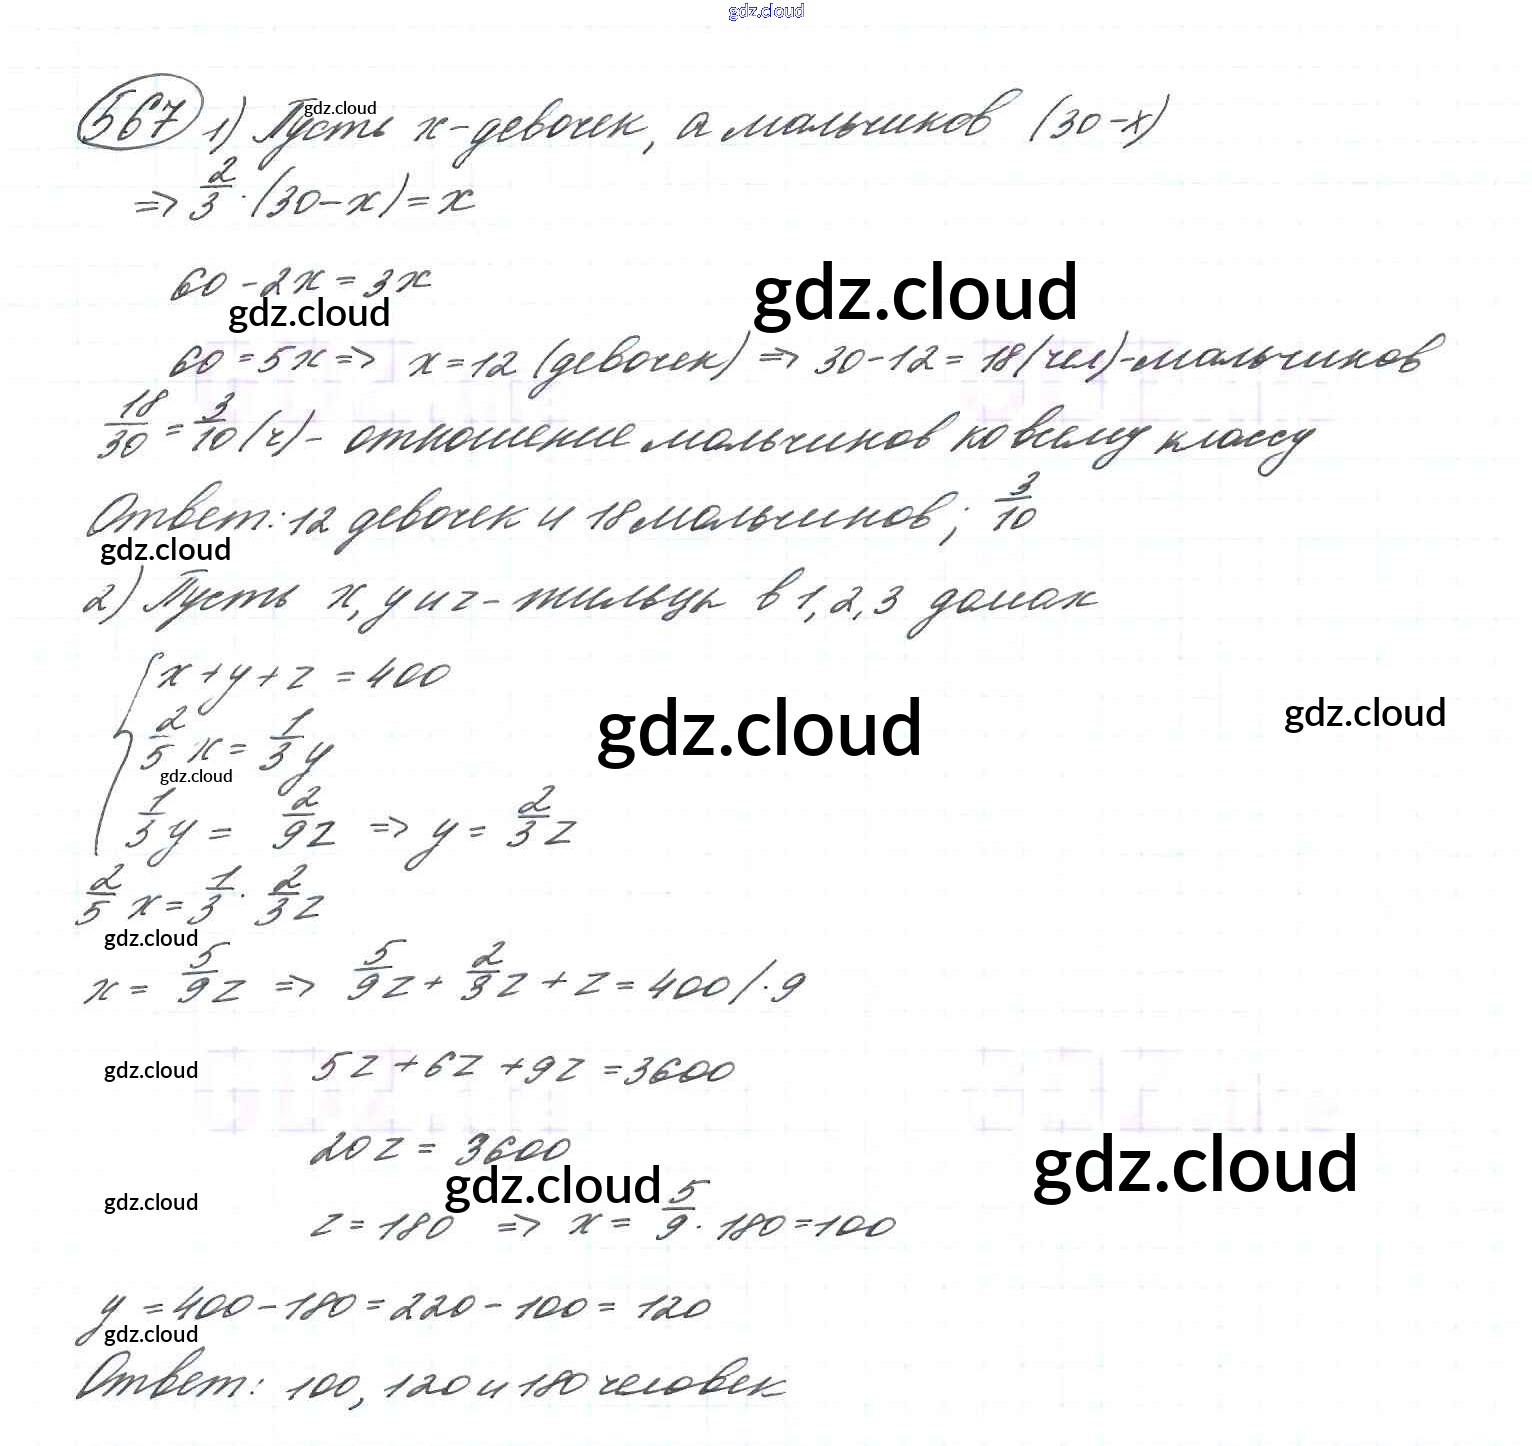 gdz.cloud
567 1) Пусть x - девочек, а мальчиков (30-x)
gdz.cloud
=> 2/3 · (30-x) = x
60 - 2x = 3x
gdz.cloud
gdz.cloud
60 = 5x => x = 12 (девочек) => 30 - 12 = 18 (чел) - мальчиков
18/30 = 3/10 (ч) - отношение мальчиков ко всему классу
Ответ: 12 девочек и 18 мальчиков; 3/10
gdz.cloud
2) Пусть x, y и z - жильцы в 1, 2, 3 домах
{ x + y + z = 400
2/5 x = 1/3 y
gdz.cloud
gdz.cloud
gdz.cloud
1/3 y = 2/9 z => y = 2/3 z
2/5 x = 1/3 · 2/3 z
gdz.cloud
x = 5/9 z => 5/9 z + 2/3 z + z = 400 / · 9
gdz.cloud
5z + 6z + 9z = 3600
20z = 3600
gdz.cloud
gdz.cloud
gdz.cloud
z = 180 => x = 5/9 · 180 = 100
y = 400 - 180 = 220 - 100 = 120
gdz.cloud
Ответ: 100, 120 и 180 человек